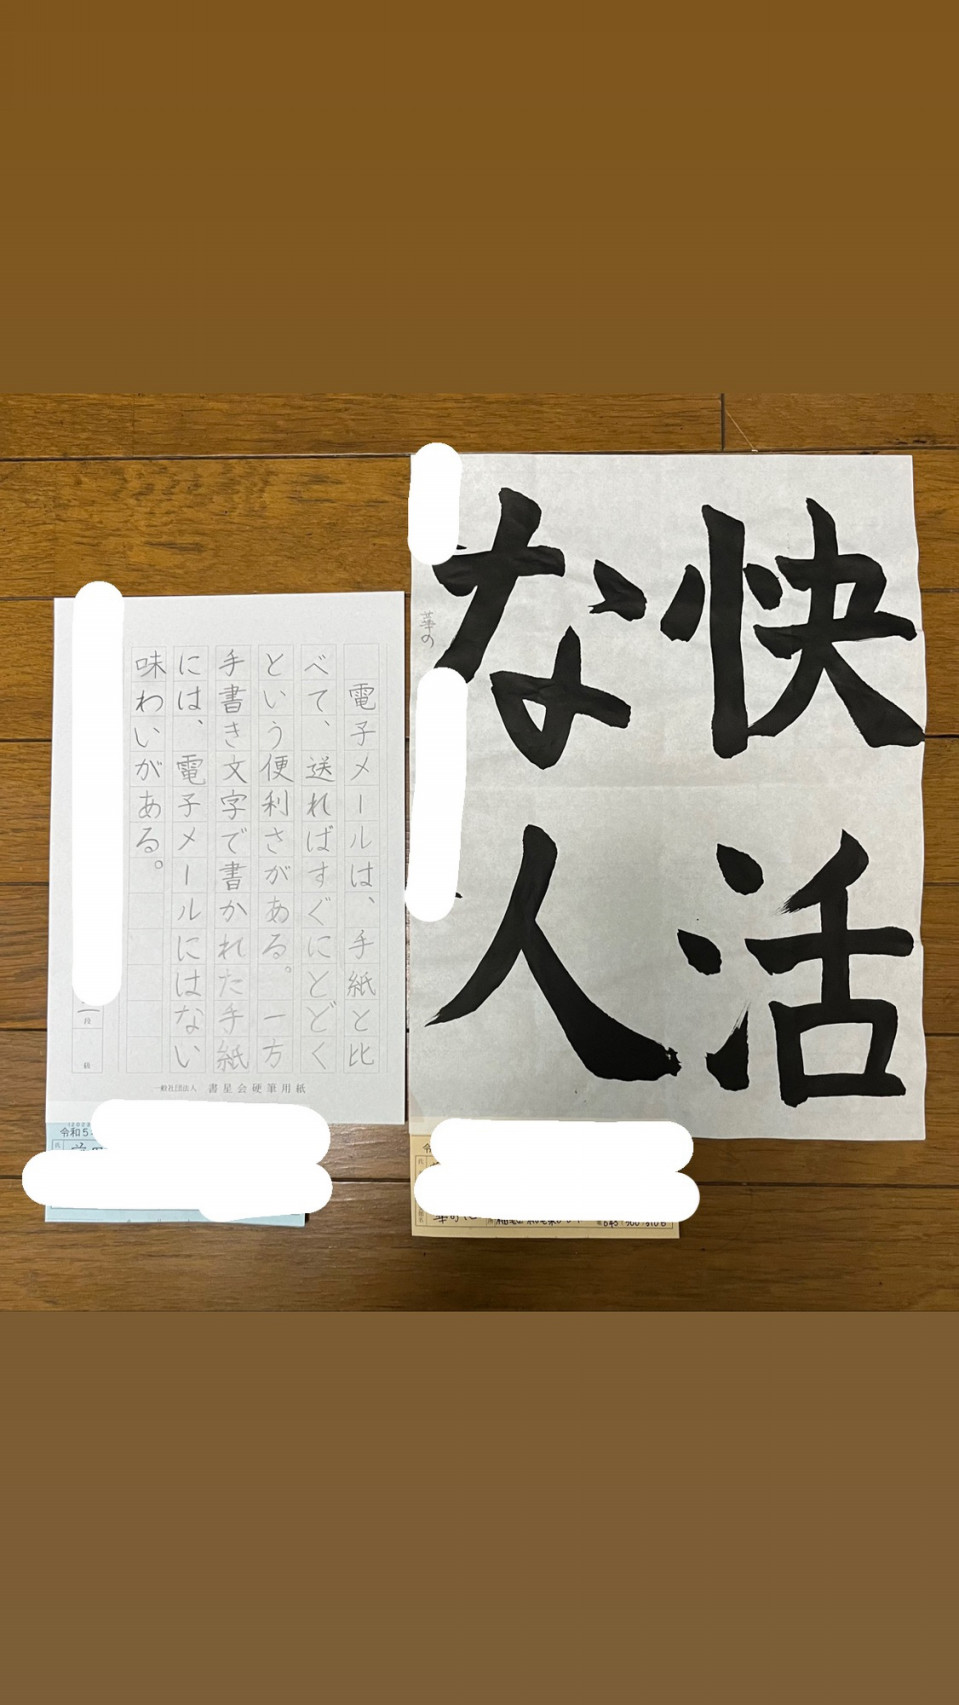 快活
な人
華の
電子メールは、手紙と比
べて、送ればすぐにとどく
という便利さがある。一方
手書き文字で書かれた手紙
には、電子メールにはない
味わいがある。
段
級
一般社団法人 書星会硬筆用紙
令和5